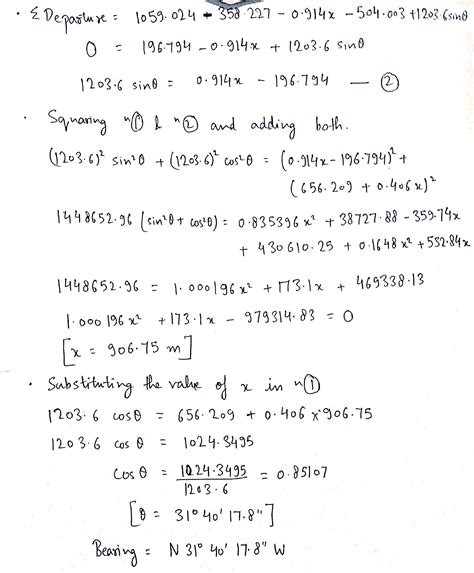 · Σ Departure = 1059.024 - 358.227 - 0.914x - 504.003 + 1203.6 sinθ
0 = 196.794 - 0.914x + 1203.6 sinθ
1203.6 sinθ = 0.914x - 196.794 — ②
· Squaring eqⁿ ① & eqⁿ ② and adding both.
(1203.6)² sin²θ + (1203.6)² cos²θ = (0.914x - 196.794)² +
(656.209 + 0.406x)²
1448652.96 (sin²θ + cos²θ) = 0.835396x² + 38727.88 - 359.74x
+ 430610.25 + 0.1648x² + 532.84x
1448652.96 = 1.000196x² + 173.1x + 469338.13
1.000196x² + 173.1x - 979314.83 = 0
[x = 906.75 m]
· Substituting the value of x in eqⁿ ①
1203.6 cosθ = 656.209 + 0.406 × 906.75
1203.6 cosθ = 1024.3495
cosθ = 1024.3495 / 1203.6 = 0.85107
[θ = 31° 40' 17.8"]
Bearing = N 31° 40' 17.8" W